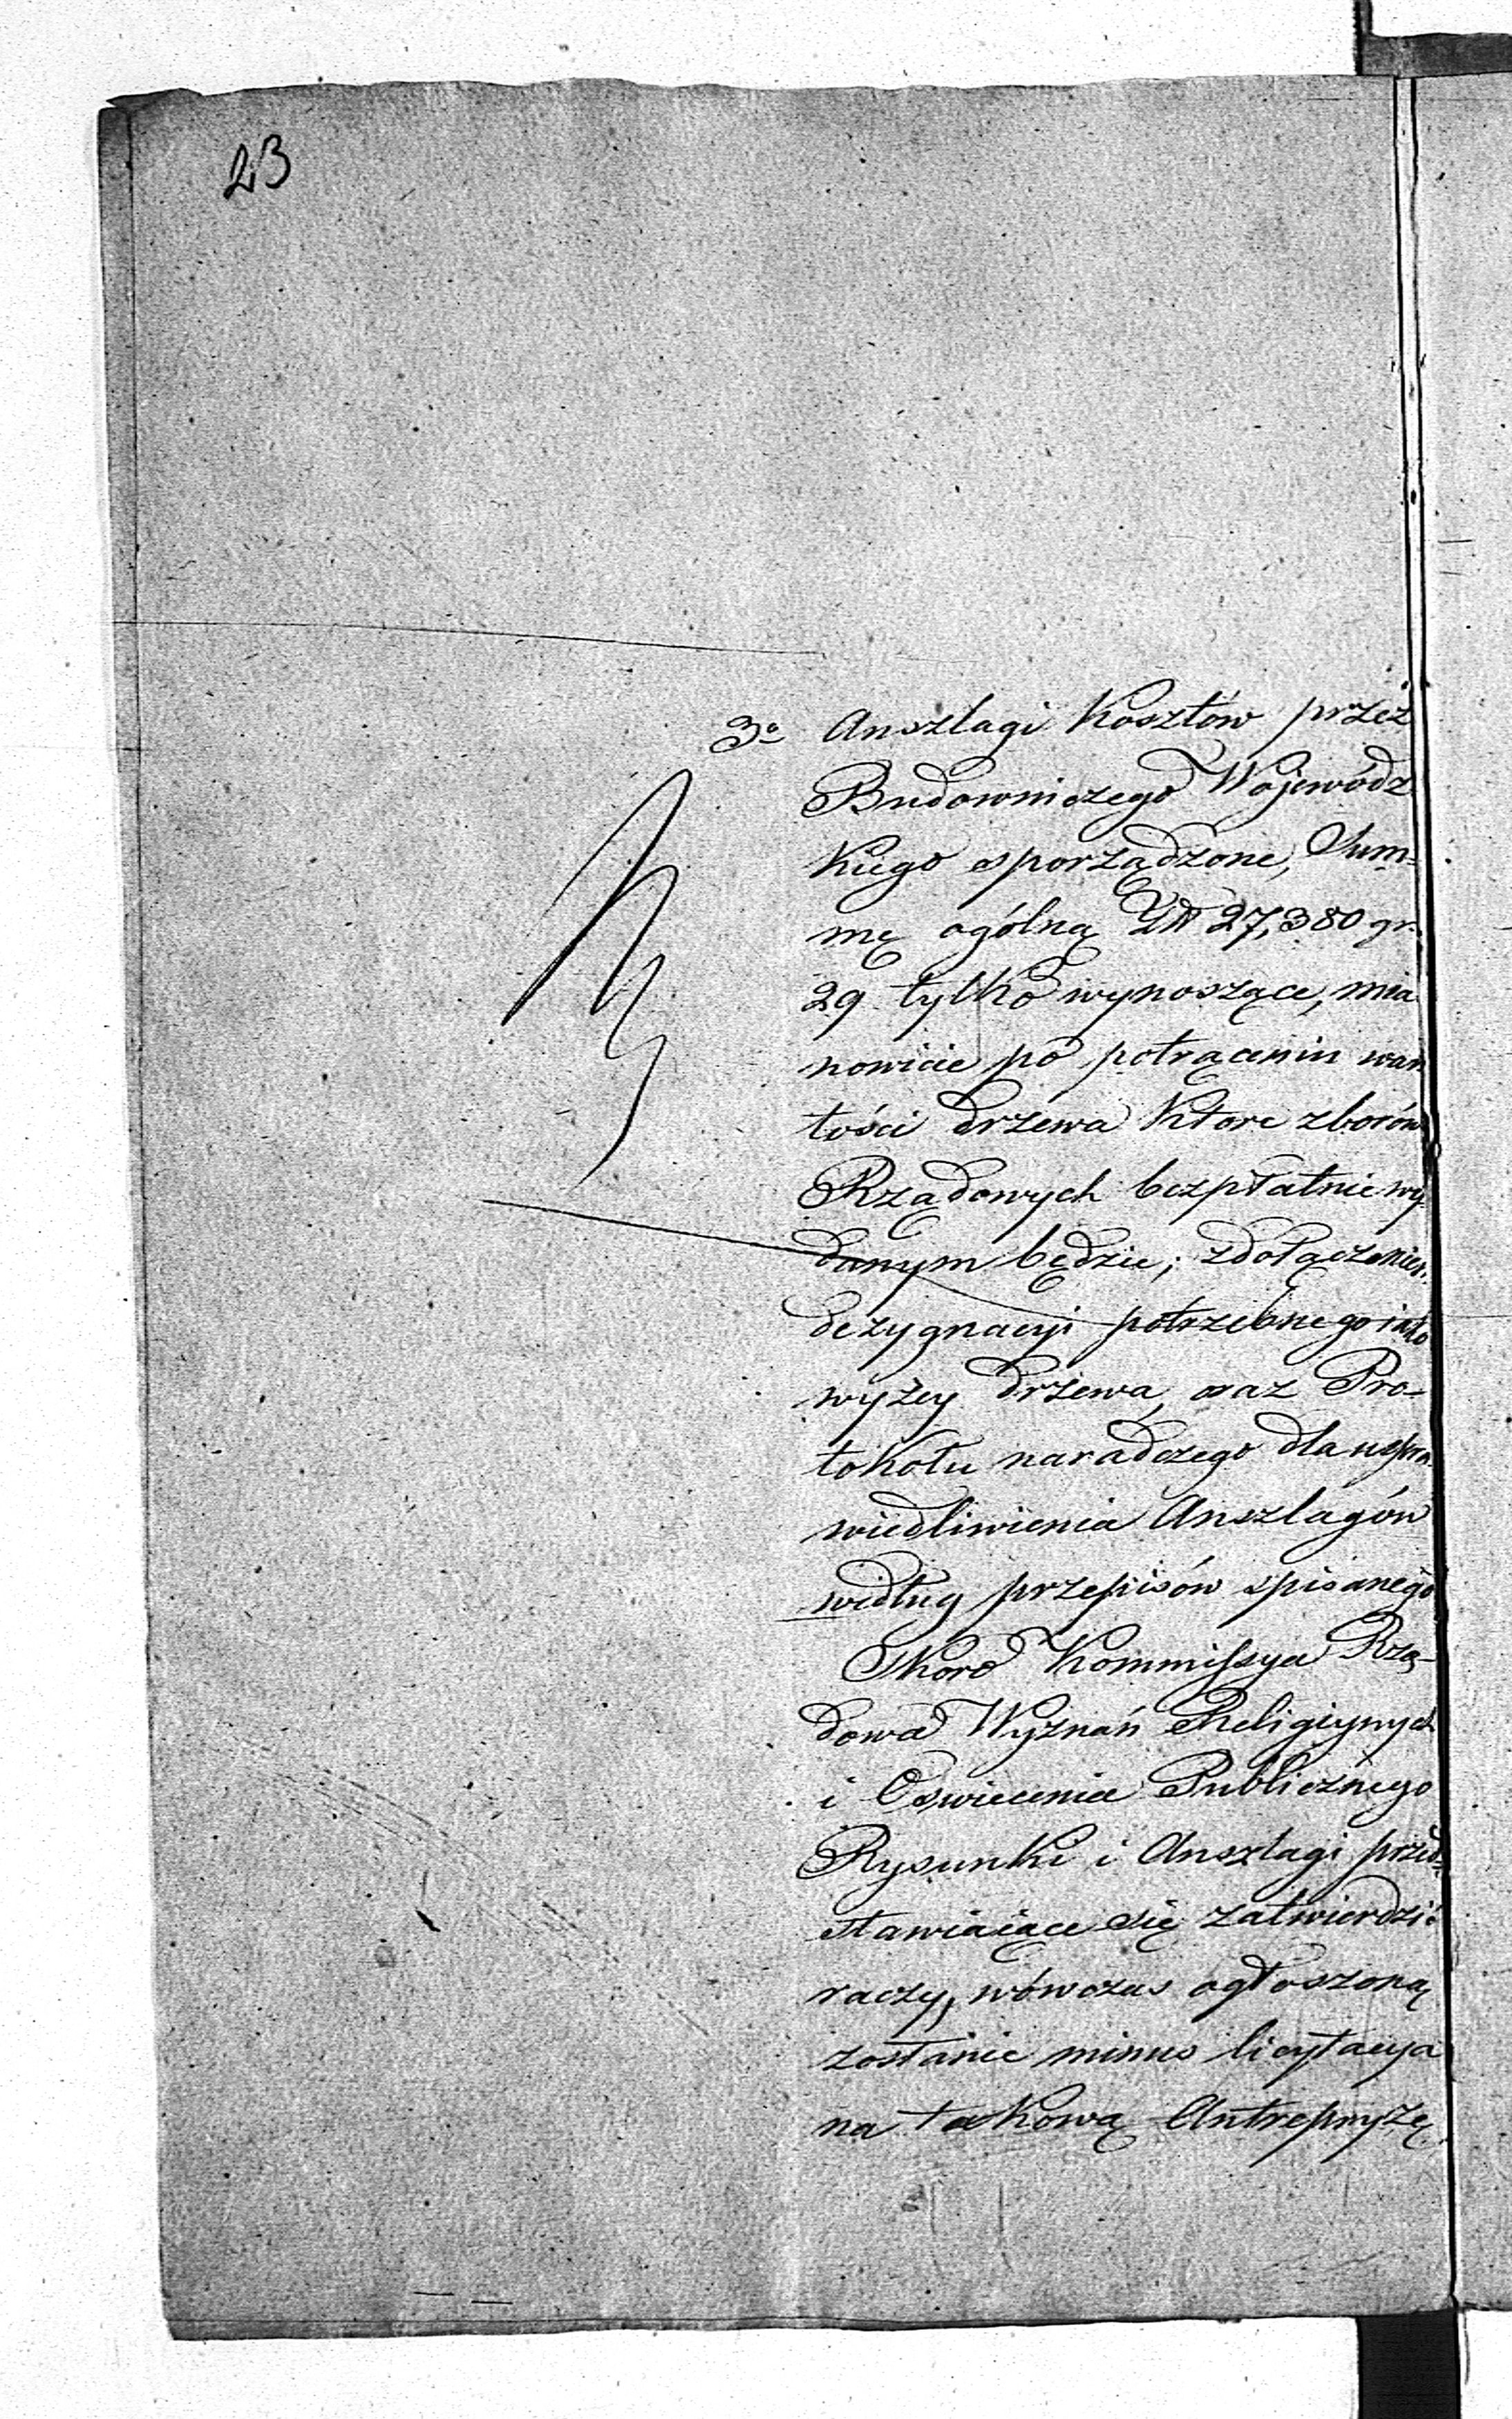 23
3o Anszlagi Kosztów przez
Budowniczego Wojewódz
kiego sporządzone, Sum=
mę ogólną Zł 27,380 gr.
29 tylko wynoszące, mia
nowicie po potrąceniu war
tości drzewa które z borów
Rządowych bezpłatnie wy
danym będzie; z dołączeniem
dezygnacyi potrzebnego iako
wyżey drzewa, oraz Pro-
tokołu naradczego dla uspra
wiedliwienia Anszlagów
według przepisów spisanego
Skoro Kommissya Rzą-
dowa Wyznań Religiynych
i Oswiecenia Publicznego
Rysunki i Anszlagi przed=
stawiaiące się zatwierdzić
raczy, wówczas ogłoszoną
zostanie minus licytacya
na takową Antrepryzę